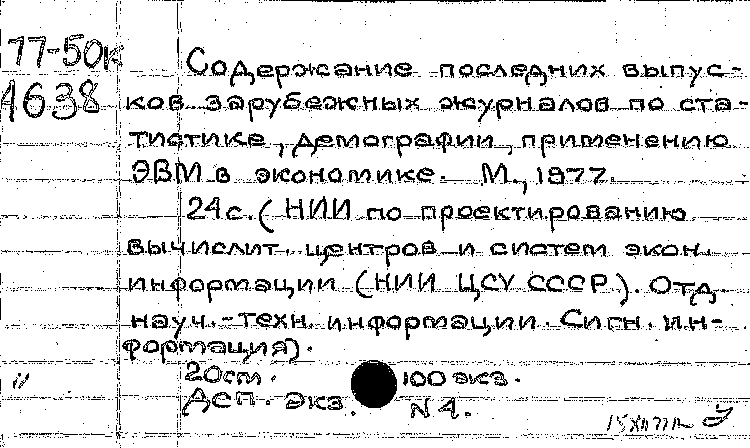 77-50к
1638
Содержание последних выпус-
ков зарубежных журналов по ста-
тистике, демографии, применению
ЭВМ в экономике. М., 1977.
24с. (НИИ по проектированию
вычислит. центров и систем экон.
информации (НИИ ЦСУ СССР). Отд.
науч.-техн. информации. Сигн. ин-
формация).
20см. 100 экз.
Деп. экз. N 4.